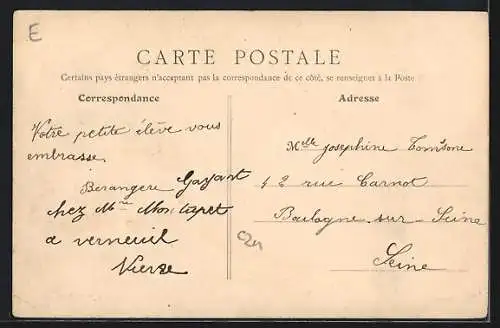 E
CARTE POSTALE
Certains pays étrangers n'acceptant pas la correspondance de ce côté, se renseigner à la Poste
Correspondance
Votre petite élève vous
embrasse
Berangere Gayant
chez Mme Montapet
a verneuil
Vierze
Adresse
Melle Josephine Tomsone
42 rue Carnot
Boulogne sur Seine
Seine